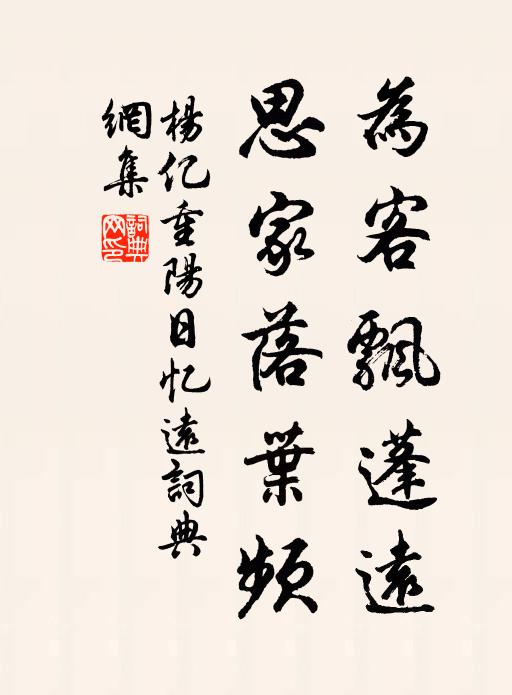 為客飄蓬遠
思家落葉頻
楊亿重陽日忆遠詞典
網集
詞典
网印